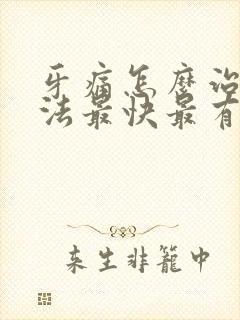 牙痛怎麼治
法最快最有
来生非籠中